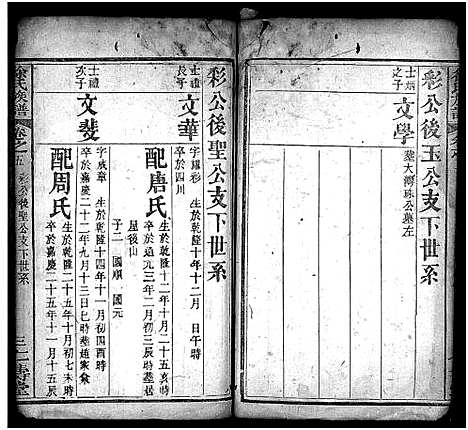 彩公後玉公支下世系
士炳之子
文學
葬大灣珠公墓左
彩公後聖公支下世系
士禮長子
文華
字耀彩 生於乾隆十年十二月 日午時
卒於四川
配唐氏
生於乾隆十二年十二月二十五亥時
卒於道光三年二月初三辰時葬居
屋後山
子二 國順 國元
士禮次子
文斐
字成章 生於乾隆十四年十一月初四酉時
卒於嘉慶二十二年九月十三巳時葬趙家
配周氏
生於乾隆二十五年十月初七未時
卒於嘉慶二十五年十一月十五辰
氏族譜
卷之五 彩公後聖公支下世系